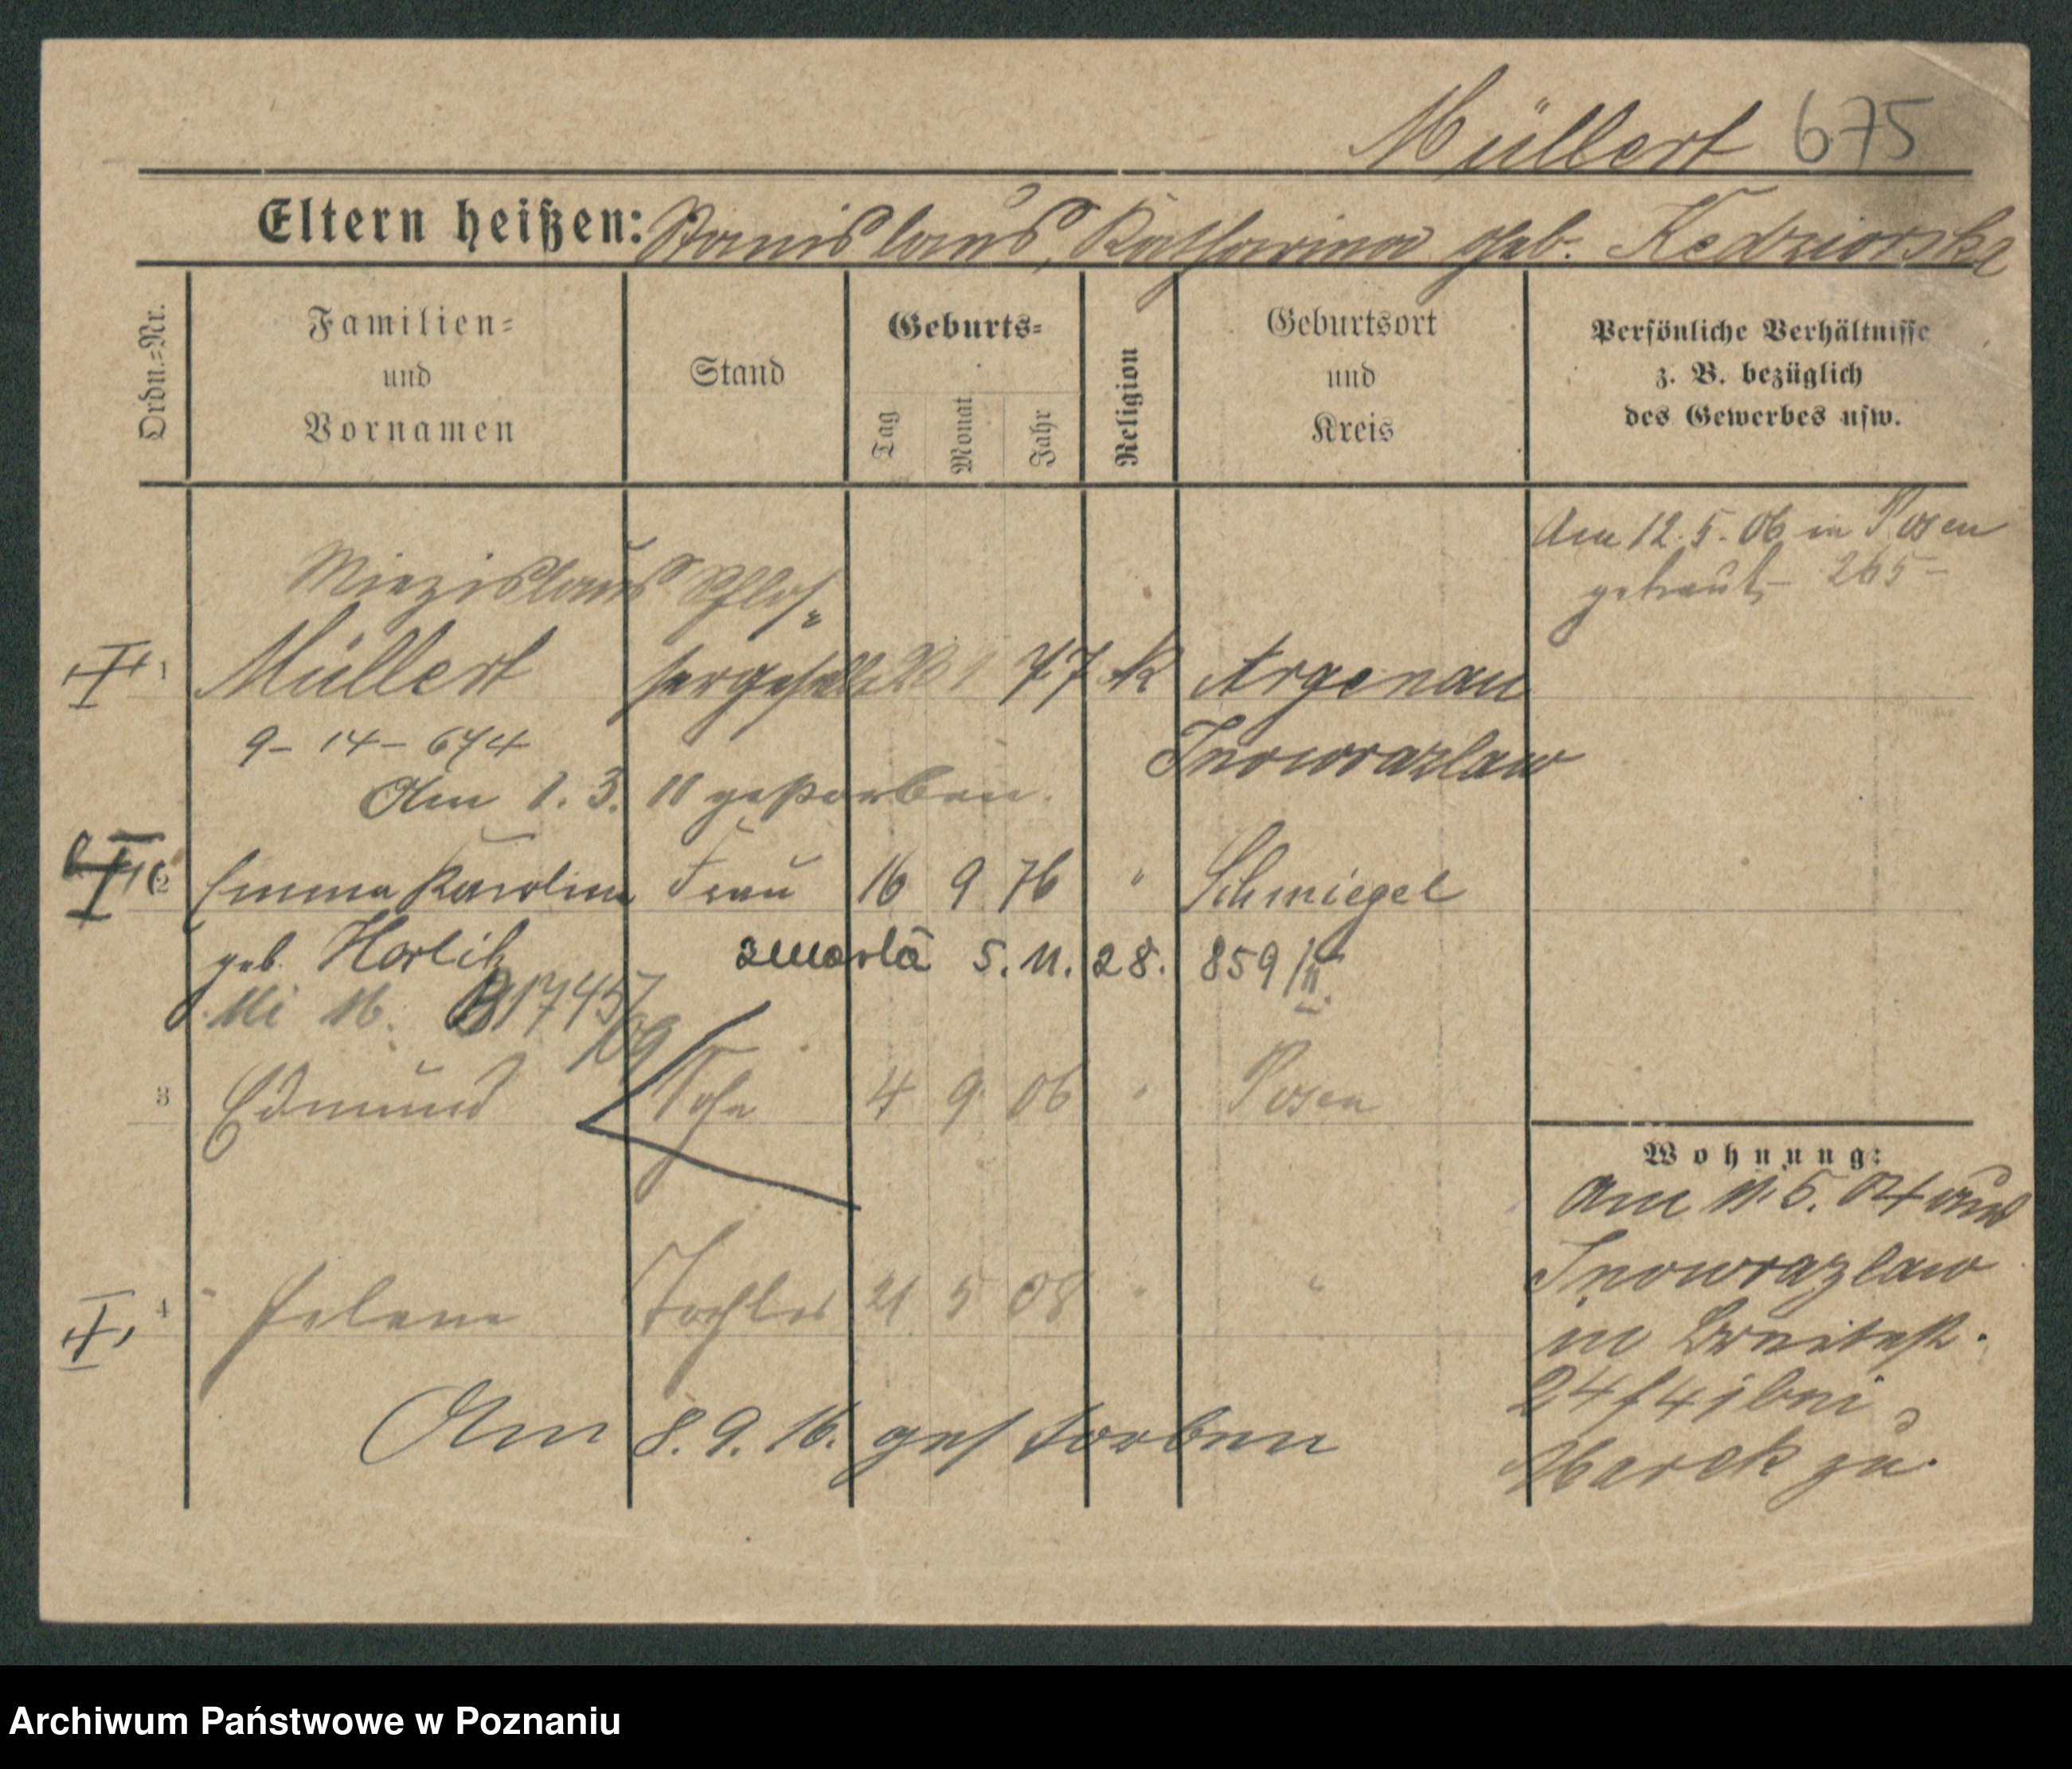 Müllert 675
Eltern heißen: Stanislaus, Katharina geb. Kedziorska
Ordn.=Nr.
Familien=
und
Vornamen
Stand
Geburts=
Tag
Monat
Jahr
Religion
Geburtsort
und
Kreis
Persönliche Verhältnisse
z. B. bezüglich
des Gewerbes usw.
Am 12. 5. 06 in Posen
getraut 265
Miezislaus Schlos=
1 Müllert sergeselle 1 77 K Argenau
9 - 14 - 674 Inowrazlaw
Am 1. 3. 11 gestorben.
2 Emma Karoline Frau 16 9 76 " Schmiegel
geb. Horlik zmarła 5. 11. 28. 859/II.
16. B 17457
/09
3 Edmund Sohn 4 9 06 " Posen
Wohnung:
Am 11. 5. 04 aus
Inowrazlaw
in Breitestr.
24 bei
Marek zu.
4 Helene Tochter 21 5 08 " "
Am 8. 9. 16. gestorben
Archiwum Państwowe w Poznaniu